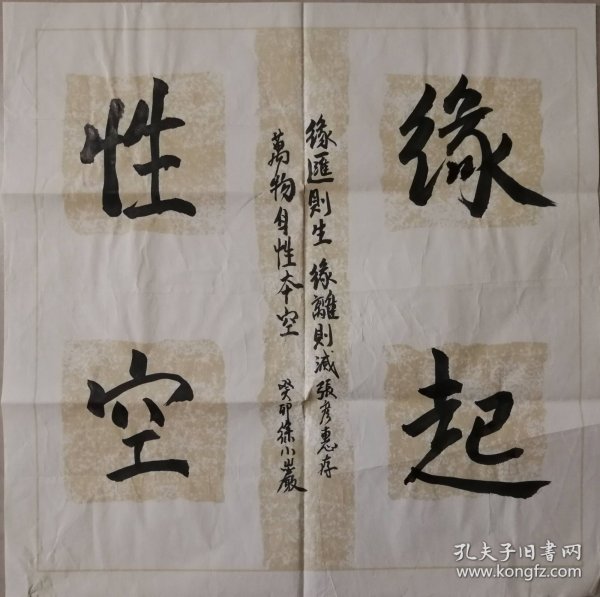 缘起
性空
缘匯則生 缘離則滅 張彦惠存
萬物自性本空
癸卯 徐小巖
孔夫子旧书网
www.kongfz.com